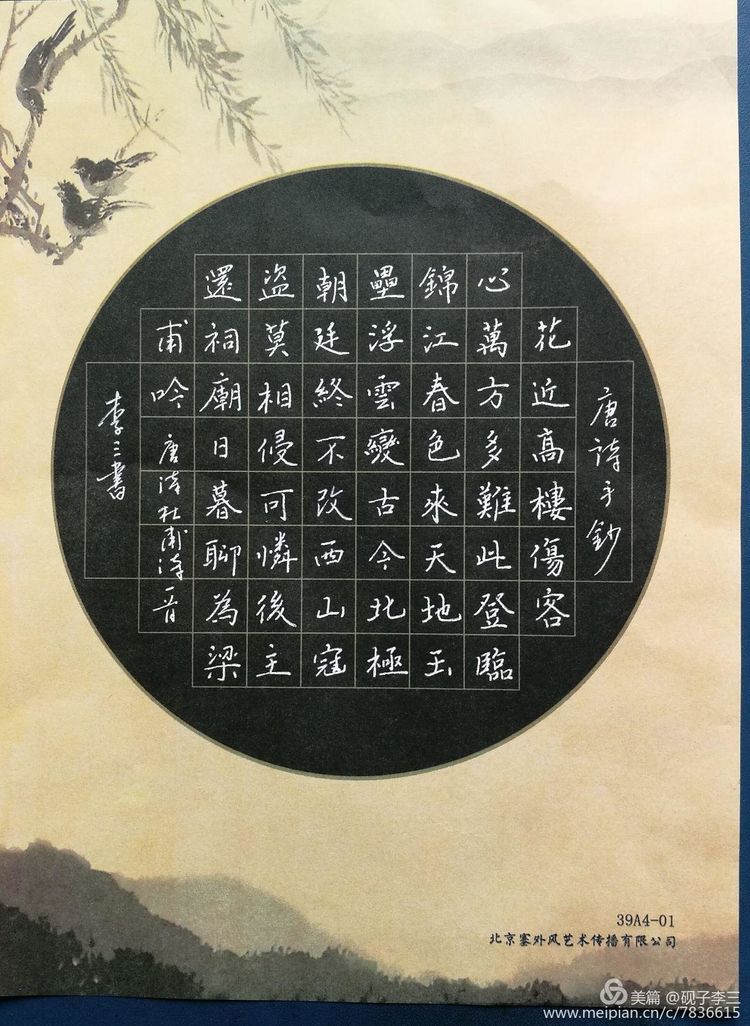 唐詩手鈔
花近高樓傷客
心萬方多難此登臨
錦江春色來天地玉
壘浮雲變古今北極
朝廷終不改西山寇
盜莫相侵可憐後主
還祠廟日暮聊為梁
甫吟 唐詩杜甫詩一首
李三書
39A4-01
北京塞外风艺术传播有限公司
美篇 @砚子李三
www.meipian.cn/c/7836615